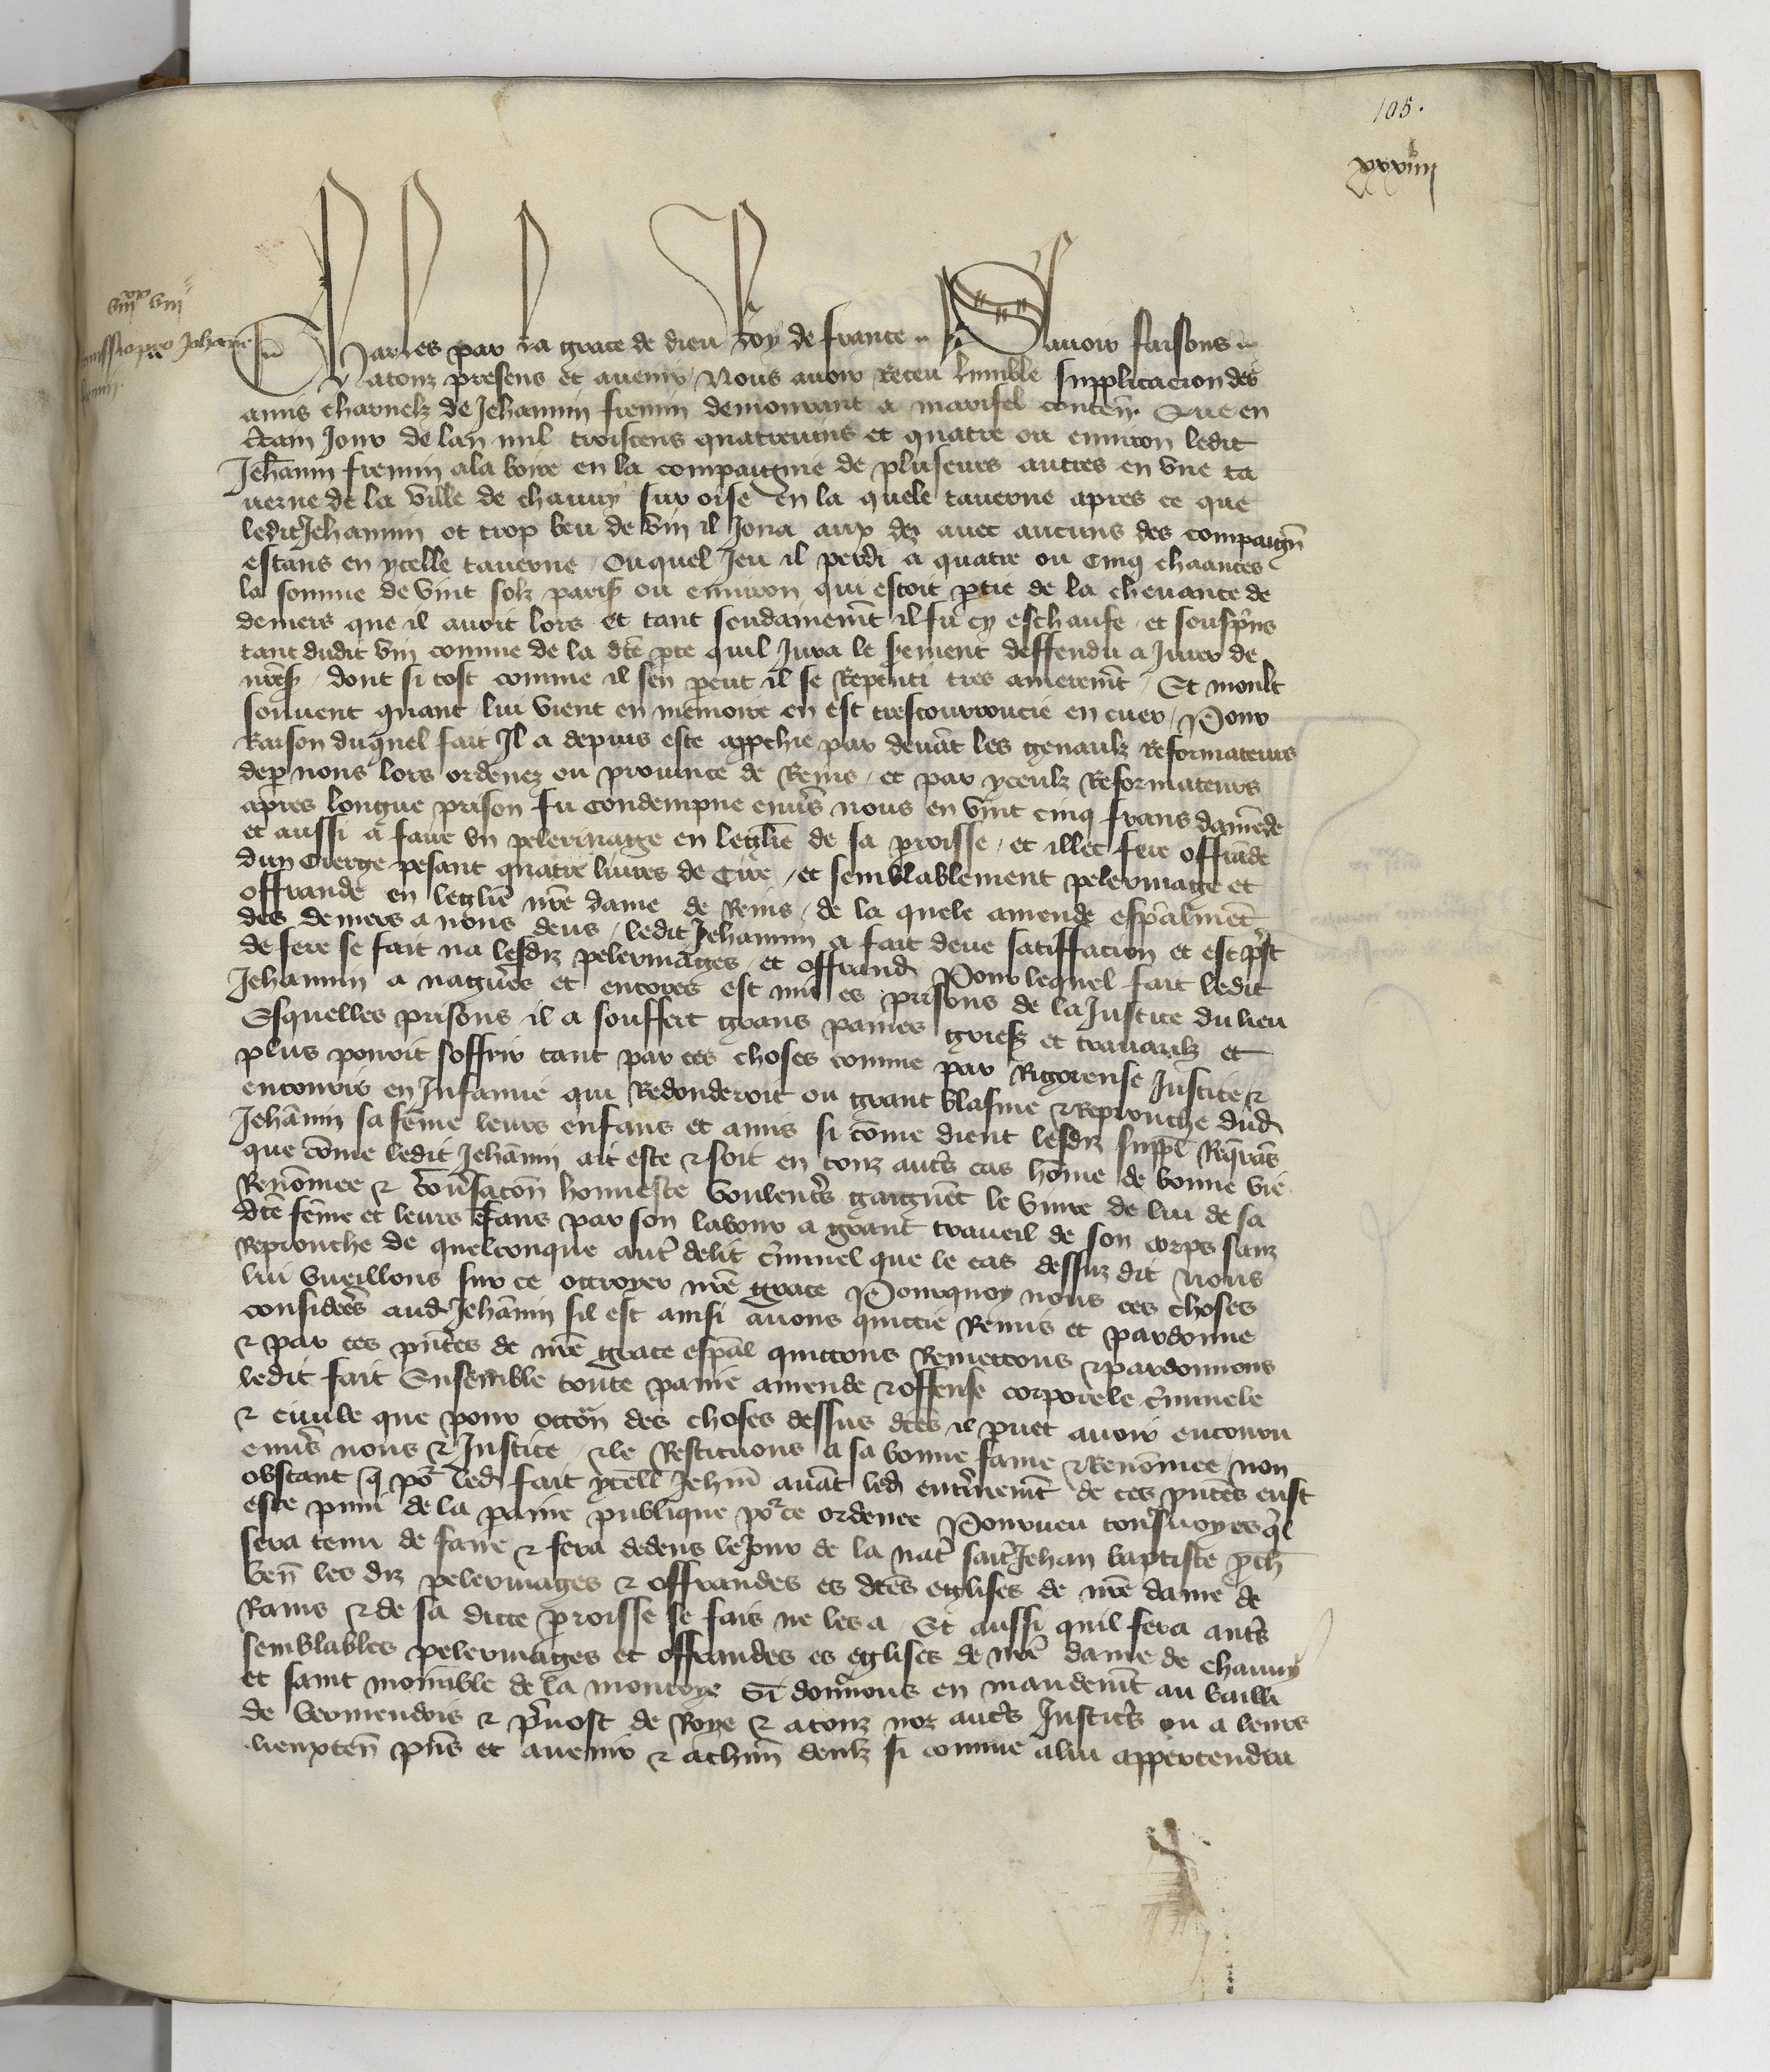 105.
xxxiiii
Charles par la grace de dieu Roy de france Sauoir faisons
atouz presens et auenir Nous auoir Receu humble supplicacion des
amis charnelz de Jehannin fremin demourant a marisel conten̄ Que en
c̄tain Jour de lan mil troiscens quatreuins et quatre ou enuiron ledit
Jeh̄annin fremin ala boire en la compaignie de pluseurs autres en vne ta
uerne de la ville de chauny sur oise en la quele tauerne apres ce que
ledit Jehannin ot trop beu de vin il Joua aux dez auec aucuns des compaign̄
estans en ycelle tauerne Ouquel Jeu il perdi a quatre ou cinq chaances
la somme de vint solz paris ou enuiron qui estoit ptie de la cheuance de
deniers que il auoit lors et tant soudainem̄t il fu cy eschaufe et souspris
tant dudit vin comme de la dte pte quil Jura le serement deffendu a Jurer de
nr̄es dont si tost comme il sen peut il se Repenti tres amerem̄t Et moult
souuent quant lui vient en memoire en est trescourroucie en cuer Pour
Raison duquel fait Il a depuis este approchie par deuāt les genaulx Reformateurs
depar nous lors ordenez ou prouince de Reins et par yceulx Reformateurs
apres longue prison fu condempne enu's nous en vint cinq frans damēde
et aussi a faire vn pelerinage en leglīe de sa proisse et illec fere offrāde
dun Cierge pesant quatre liures de Cire et semblablement pelerinage et
offrande en leglīe nr̄e dame de Reins de la quele amende esp̄alment
des deniers a nous deus ledit Jehannin a fait deue satiffacion et est p̄st
de fere se fait na lesdiz pelerinages et offrand Pour lequel fait ledit
Jehannin a nagu'es et encores est mis es prisons de la Justice du lieu
Esquelles prisons il a souffert grans paines griefs et trauailz et
plus pouroit soffrir tant par ces choses comme par Rigoreuse Justice &
encourir en Infamie qui Redonderoit ou grant blasme & Reprouche dud
Jehānin sa fēme leurs enfans et amis si cōme dient lesdiz suppl Req̄rās
que cōme ledit Jehānin ait este & soit en touz aut's cas hōme de bonne vie
Renōmee & cōu'sacōn honneste voulent's gaignēt le viure de lui de sa
dte fēme et leurs ēfans par son labour a grant traueil de son corps sanz
Reprouche de quelconque aut' delit c'minel que le cas dessuz dit Nous
lui vueillons sur ce octroyer nr̄e grace Pourquoy nous ces choses
considerēs aud Jehānin sil est ainsi auons quittie Remis et pardonne
& par ces pn̄tes de nr̄e grace esp̄al quittons Remettons & pardonnons
ledit fait Ensemble toute paine amende & offense corporele c'minele
& ciuile que pour occōn des choses dessus dtēs il puet auoir encouru
enu's nous & Justice & le Restituons a sa bonne fame & Renōmee non
obstant q̄ po' led fait ycell Jehnī auāt led ent'inem̄t de ces pn̄tes eust
este puni de la paine publique po' ce ordenee Pourueu tout'uoyes q̄l
sera tenu de faire & fera dedens le Jour de la nat' saīt Jehan baptiste p̄ch
ven̄ les diz pelerinages & offrandes es dtēs eglises de nr̄e dame de
Rains & de sa dicte proisse se fais ne les a Et aussi quil fera aut's
semblables pelerinages et offrandes es eglises de nr̄e dame de chauny
et saint mōmble de la montoye Si donnons en mandem̄t au bailli
de vermendois & p'uost de Roye & atouz noz aut's Justic's ou a leurs
lieuxten̄ pn̄s et auenir & achūn deulz si comme alui appertendra